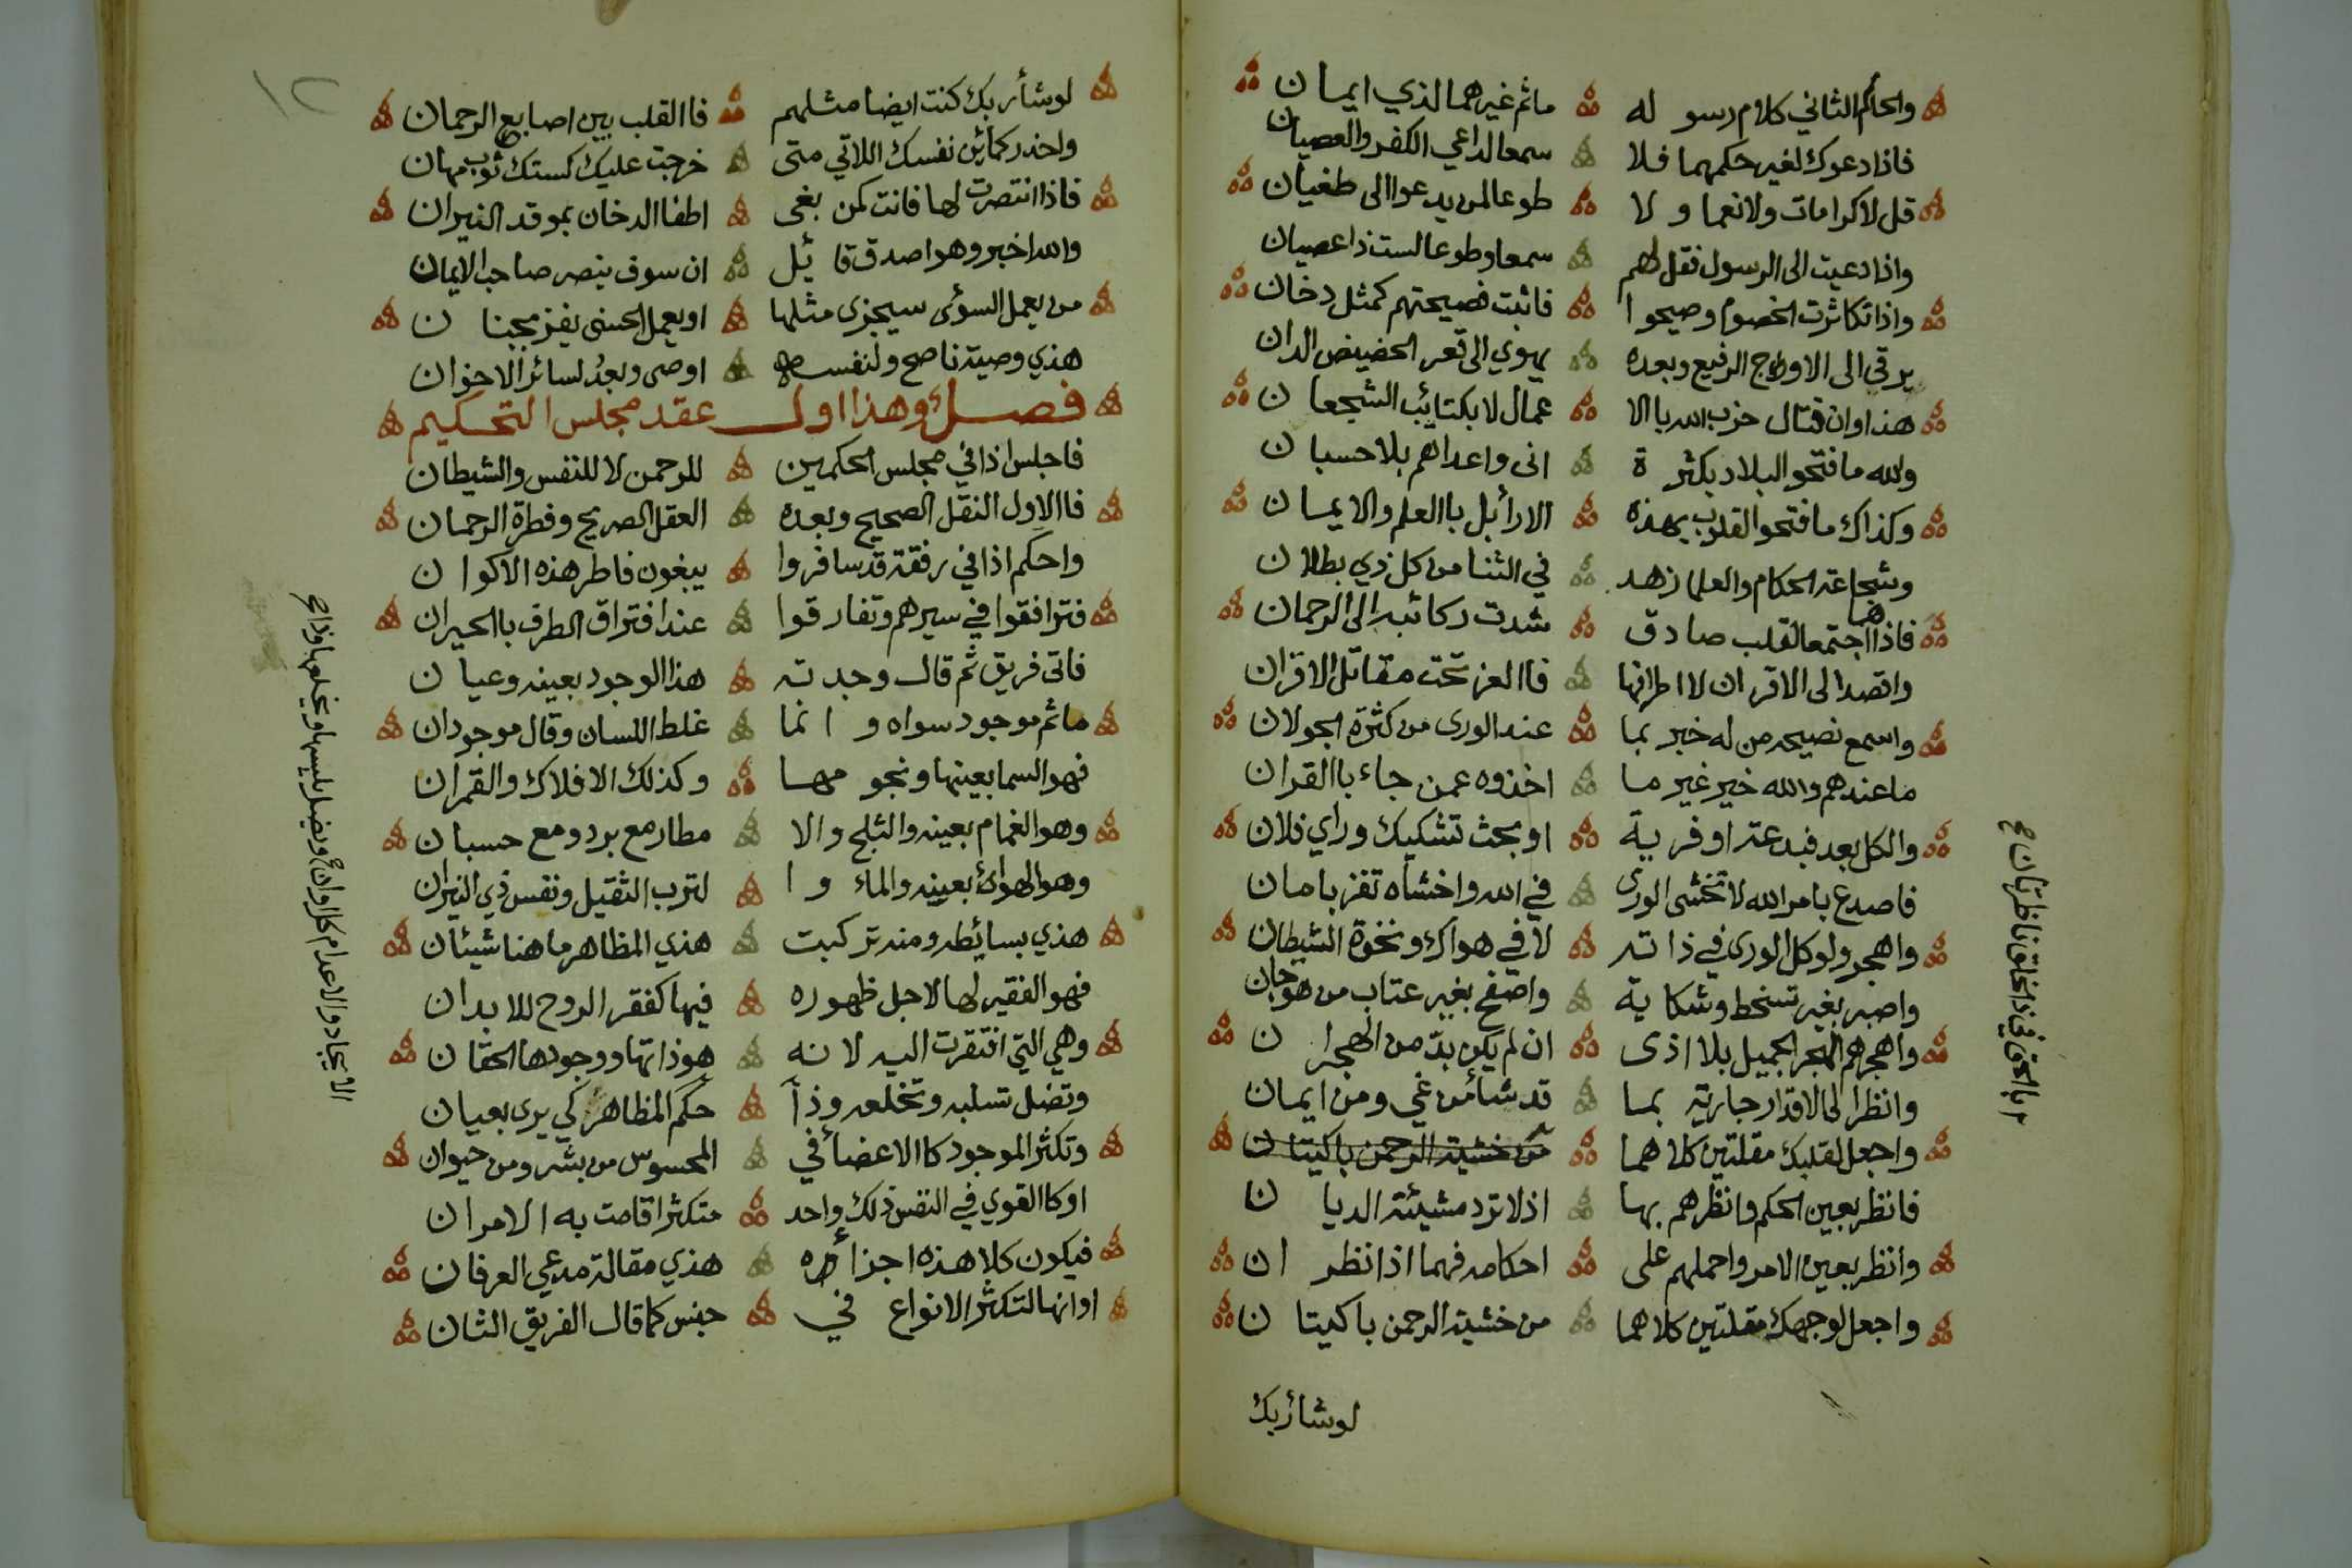 والحاكم الثاني كلام رسوله ماثم غيرهما لذي ايمان
فاذا دعوك لغير حكمهما فلا سمعا لداعي الكفر والعصيان
قل لا كرامات ولا نعما ولا طوعا لمن يدعوا الى طغيان
واذا دعيت الى الرسول فقل لهم سمعا وطوعا لست ذا عصيان
واذا تكاثرت الخصوم وصيحوا فاثبت فصيحتهم كمثل دخان
يرقي الى الاوج الرفيع وبعده يهوي الى قعر الحضيض الدان
هذا وان قتال حزب الله بالا عمال لا بكتائب الشجعان
والله ما فتحو البلاد بكثرة انى واعداهم بلا حسبان
وكذاك ما فتحو القلوب بهذه الارأبل باالعلم والايمان
وشجاعة الحكام والعلما زهد في الثنا من كل ذي بطلان
فاذا هما اجتمعا لقلب صادق شدت ركائبه الى الرحمان
واقصد الى الاقران لا اطرافها فاالعز تحت مقاتل الاقران
واسمع نصيحه من له خبر بما عند الورى من كثرة الجولان
ما عندهم والله خير غير ما اخذوه عمن جاء باالقران
والكل بعد فبدعة او فرية او بحث تشكيك وراي فلان
فاصدع بامر الله لا تخشى الورى في الله واخشاه تفز بامان
واهجر ولو كل الورى في ذاته لا في هواك ونخوة الشيطان
واصبر بغير تسخط وشكاية واصفح بغير عتاب من هو جان
واهجرهم الهجر الجميل بلا اذى ان لم يكن بد من الهجران
وانظر الى الاقدار جارية بما قد شأ من غي ومن ايمان
واجعل لقلبك مقلتين كلاهما من خشية الرحمن باكيتان
فانظر بعين الحكم وانظرهم بها اذ لا ترد مشيئة الديان
وانظر بعين الامر واحملهم على احكامه فهما اذا نظران
واجعل لوجهك مقلتين كلاهما من خشية الرحمن باكيتان
لوشأربك
بالحق في ذا الخلق ناظرتان
لوشأربك كنت ايضا مثلهم فاالقلب بين اصابع الرحمان
واحذر كمائن نفسك اللاتي متى خرجت عليك كستك ثوب مهان
فاذا انتصرت لها فانت كمن بغى اطفا الدخان بموقد النيران
والله اخبر وهو اصدق قائل ان سوف ينصر صاحب الايمان
من يعمل السوئى سيجزى مثلها او يعمل الحسنى يفز بجنان
هذي وصية ناصح ولنفسه اوصى وبعد لسائر الاخوان
فصل وهذا اول عقد مجلس التحكيم
فاجلس اذا في مجلس الحكمين للرحمن لا للنفس والشيطان
فاالاول النقل الصحيح وبعده العقل الصريح وفطرة الرحمان
واحكم اذا في رفقة قد سافروا يبغون فاطر هذه الاكوان
فترافقوا في سيرهم وتفارقوا عند افتراق الطرق باالحيران
فاتى فريق ثم قال وجدته هذا الوجود بعينه وعيان
ماثم موجود سواه وانما غلط اللسان وقال موجودان
فهو السما بعينها ونجومها وكذلك الافلاك والقمران
وهو الغمام بعينه والثلج والا مطار مع برد ومع حسبان
وهو الهوائ بعينه والماء وا لترب الثقيل ونفس ذي النيران
هذي بسائطه ومنه تركبت هذي المظاهر ما هنا شيئان
فهو الفقير لها لاجل ظهوره فيها كفقر الروح للابدان
وهي التي افتقرت اليه لانه هو ذاتها ووجودها الحقان
وتضل تسلبه وتخلعه وذا حكم المظاهر كي يرى بعيان
وتكثر الموجود كاالاعضأ في المحسوس من بشر ومن حيوان
او كاالقوي في النفس ذلك واحد متكثرا قامت به الامران
فيكون كلا هذه اجزأه هذي مقالة مدعي العرفان
او انها لتكثر الانواع في جنس كما قال الفريق الثان
وتضل يلبسها ويخلعها وذا
الايجاد والاعدام كل اوان
١٢